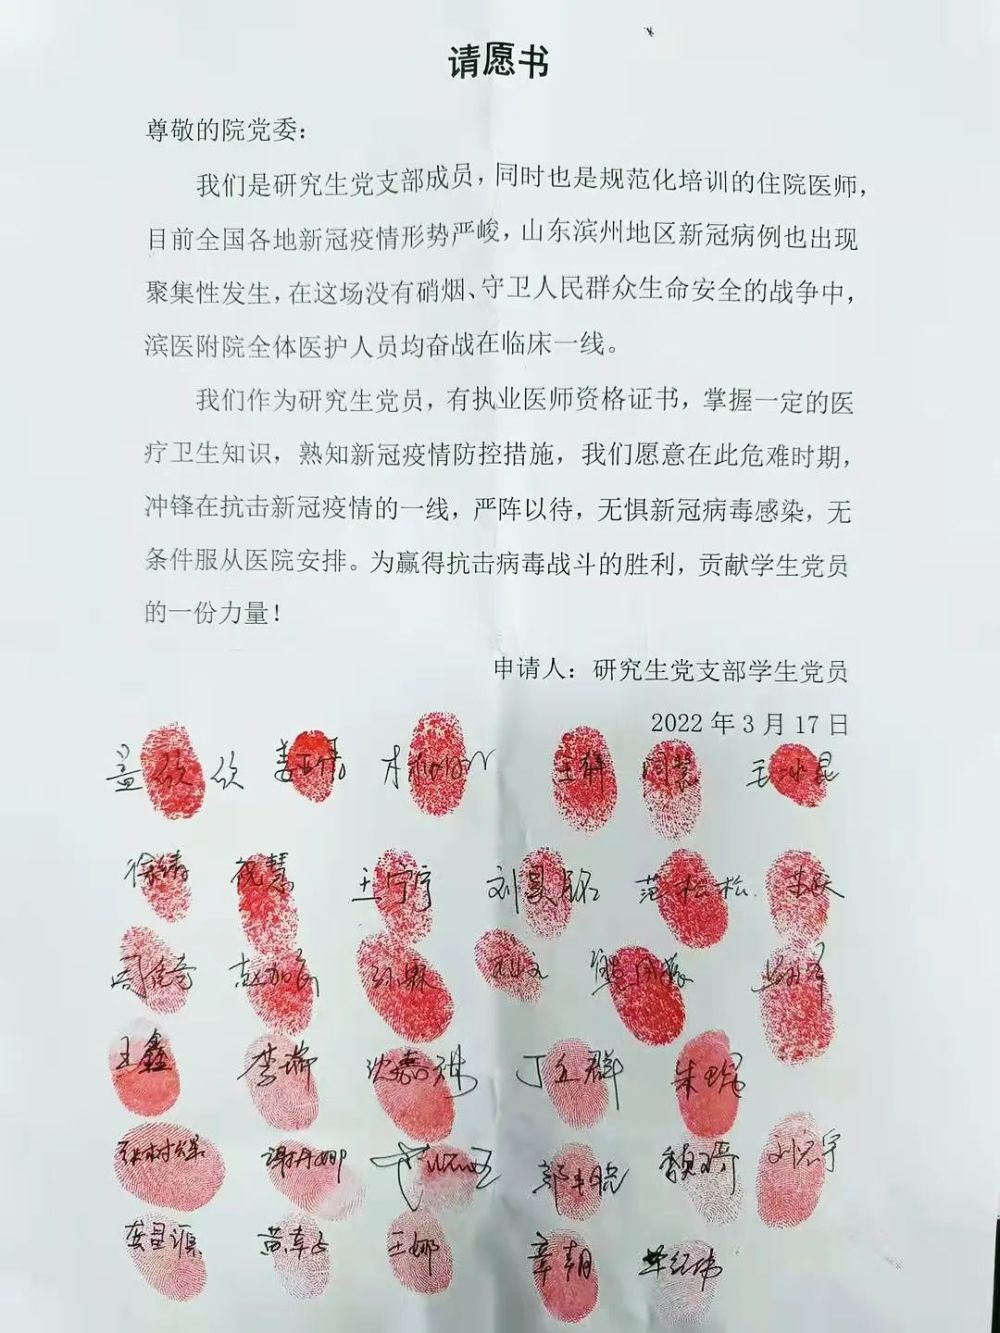 请愿书
尊敬的院党委：
我们是研究生党支部成员，同时也是规范化培训的住院医师，
目前全国各地新冠疫情形势严峻，山东滨州地区新冠病例也出现
聚集性发生，在这场没有硝烟、守卫人民群众生命安全的战争中，
滨医附院全体医护人员均奋战在临床一线。
我们作为研究生党员，有执业医师资格证书，掌握一定的医
疗卫生知识，熟知新冠疫情防控措施，我们愿意在此危难时期，
冲锋在抗击新冠疫情的一线，严阵以待，无惧新冠病毒感染，无
条件服从医院安排。为赢得抗击病毒战斗的胜利，贡献学生党员
的一份力量！
申请人：研究生党支部学生党员
2022 年 3 月 17 日
王冰昆
王宁宁 范松松
王鑫 李瑞 沈嘉琪
谢丹娜 刘宏宇
王娜 章朝